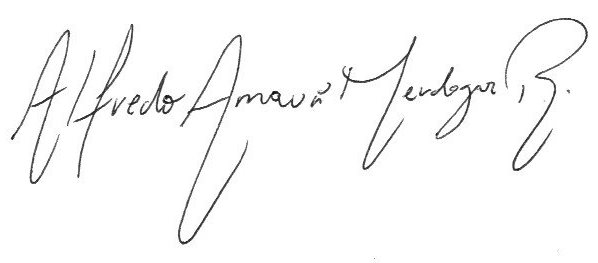 Alfredo Amavá Mendoza R.